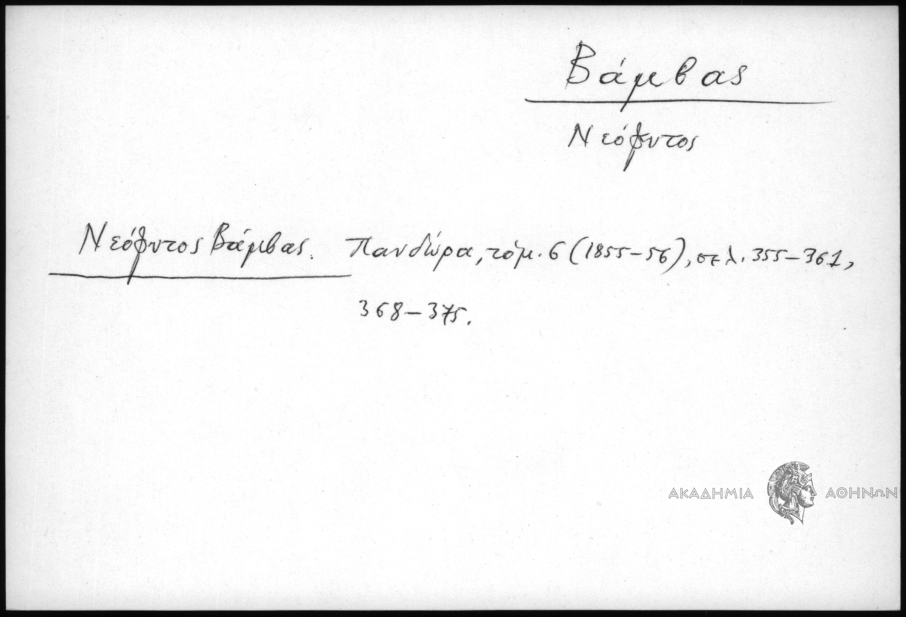 Βάμβας
Νεόφυτος
Νεόφυτος Βάμβας. Πανδώρα, τόμ. 6 (1855-56), σελ. 355-361,
368-375.
ΑΚΑΔΗΜΙΑ ΑΘΗΝΩΝ